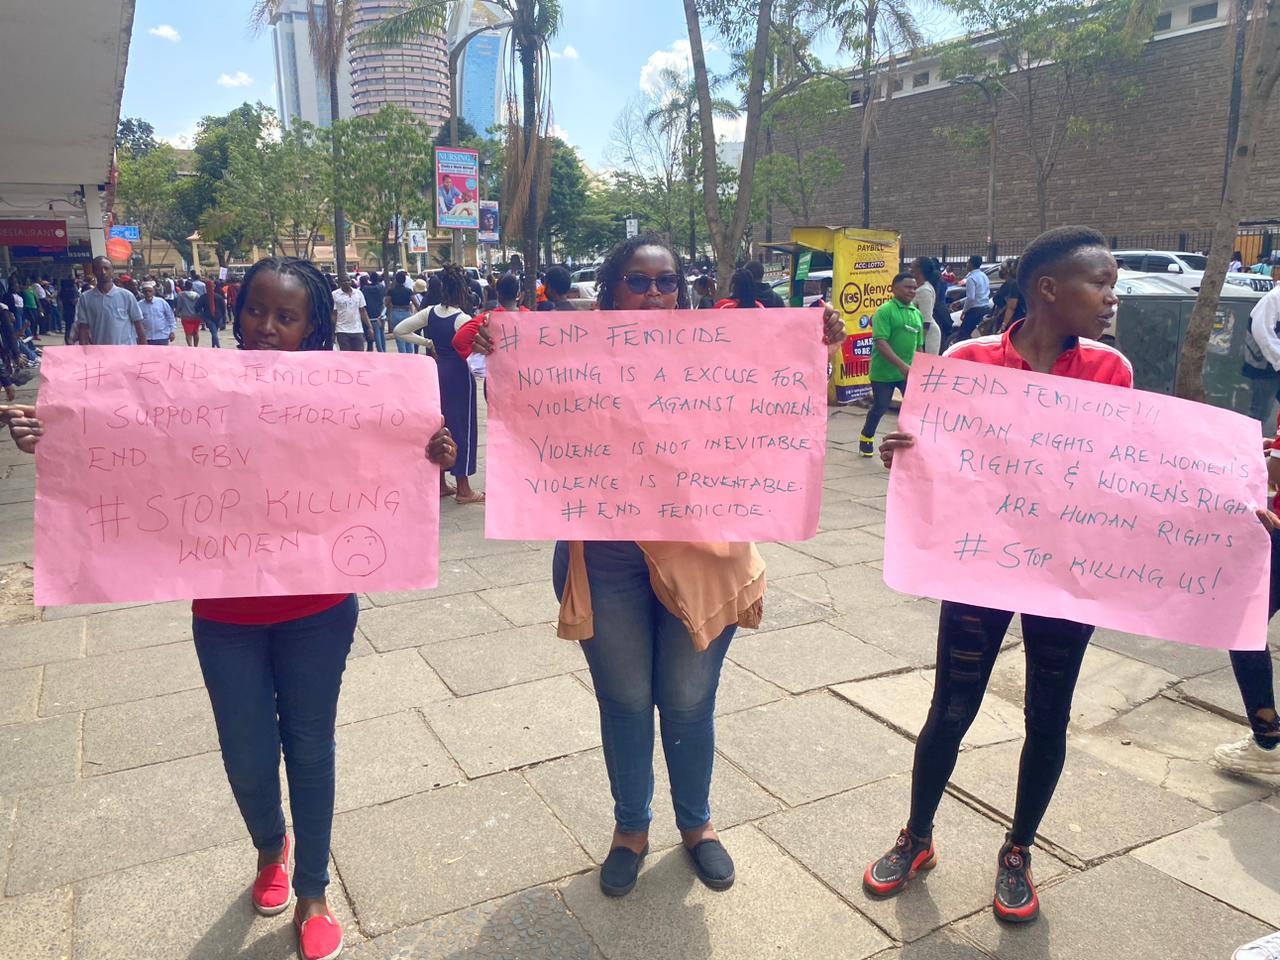 # END FEMICIDE
I SUPPORT EFFORTS TO
END GBV
# STOP KILLING
WOMEN
# END FEMICIDE
NOTHING IS A EXCUSE FOR
VIOLENCE AGAINST WOMEN.
VIOLENCE IS NOT INEVITABLE
VIOLENCE IS PREVENTABLE.
# END FEMICIDE.
#END FEMICIDE!!!
HUMAN RIGHTS ARE WOMEN'S
RIGHTS & WOMEN'S RIGH
ARE HUMAN RIGHTS
# STOP KILLING US!
NURSING
RESTAURANT
PAYBILL
ACC: LOTTO
Kenya
charity
DARE
TO BE